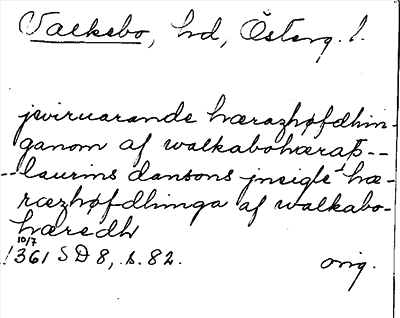 Valkebo, hd, Österg. l.
jwiruarande hæræzhøfdhin-
ganom af walkabohæraþ--
--laurins dansons jnsigle ^ hæ-
ræzhøfdhinga af walkabo-
hæredh
10/7
1361 SD 8, s. 82. orig.